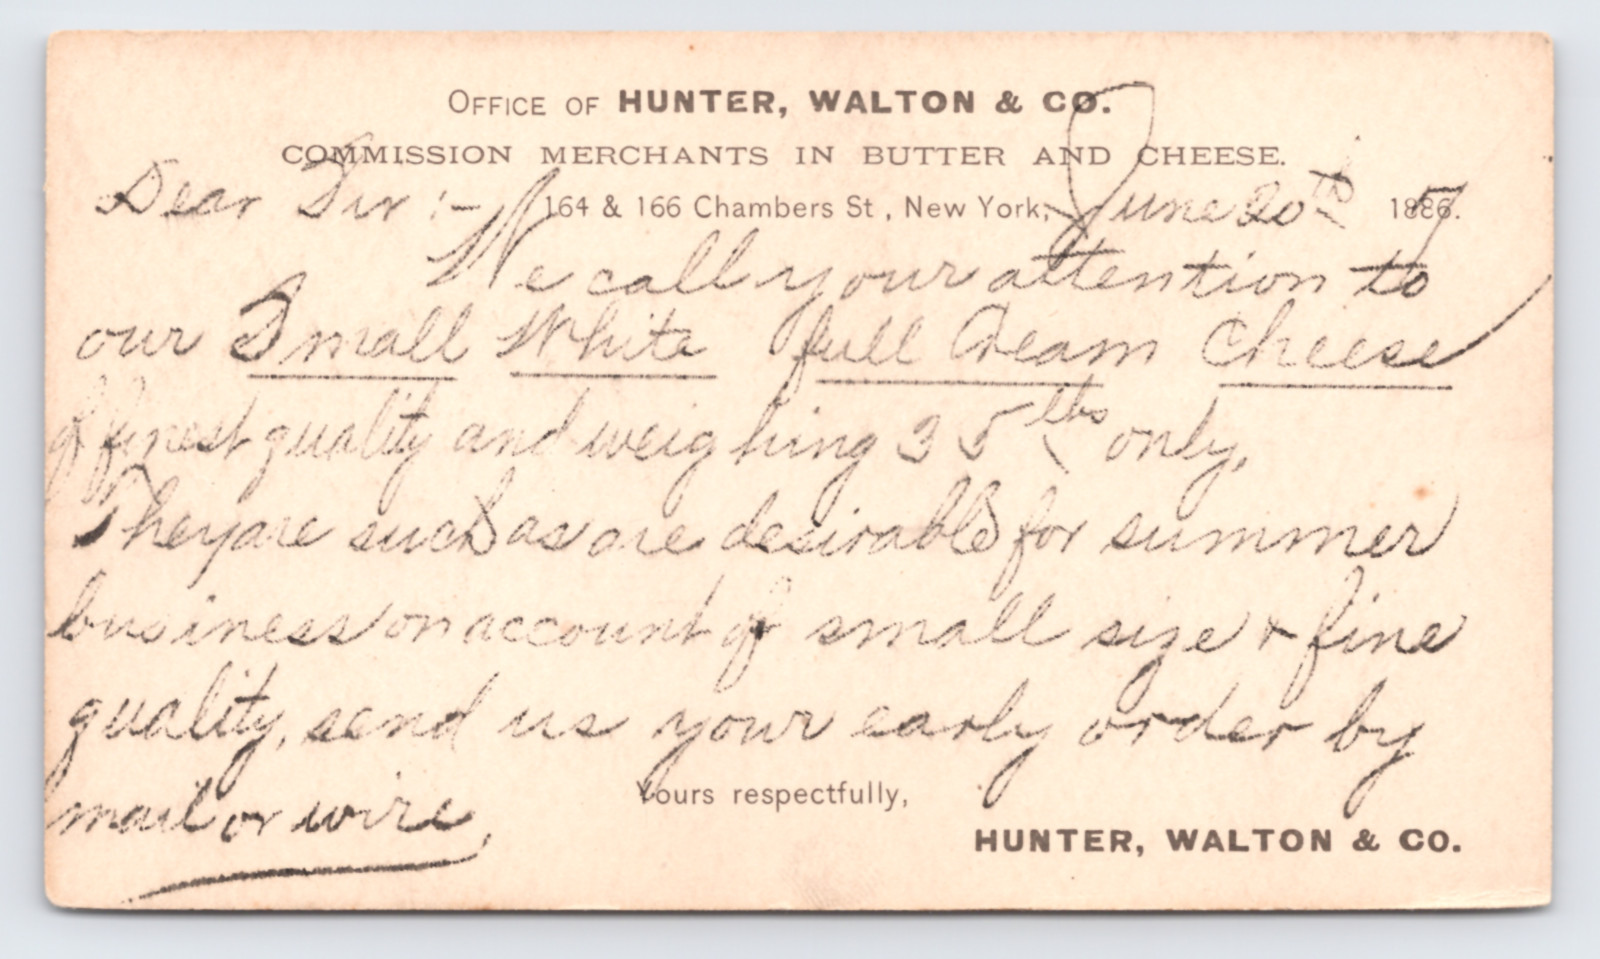 OFFICE OF HUNTER, WALTON & CO.
COMMISSION MERCHANTS IN BUTTER AND CHEESE.
Dear Sir :- 164 & 166 Chambers St., New York, June 20th 1887.
We call your attention to
our Small White full Cream Cheese
of finest quality and weighing 35 lbs only.
They are such as are desirable for summer
business on account of small size & fine
quality, send us your early order by
mail or wire,
Yours respectfully,
HUNTER, WALTON & CO.